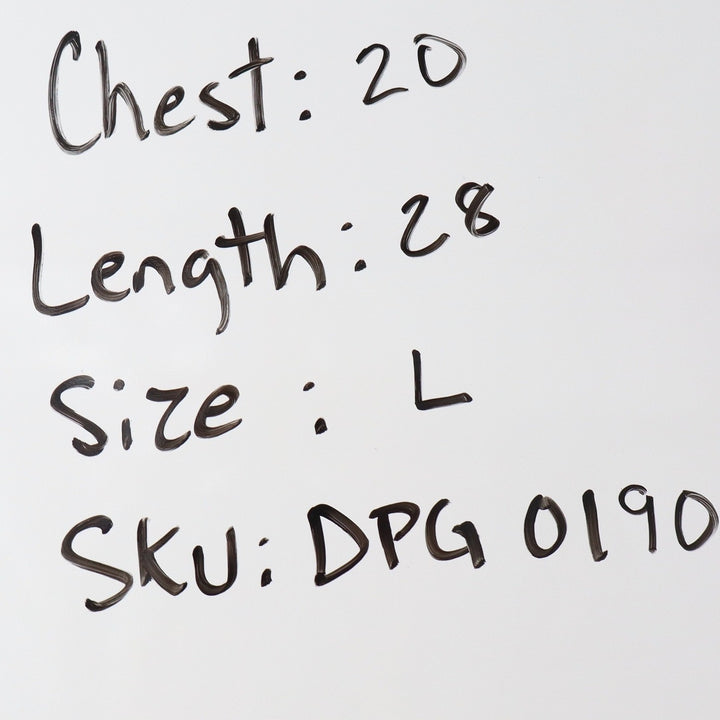 Chest: 20
Length: 28
Size : L
SKU: DPG 0190